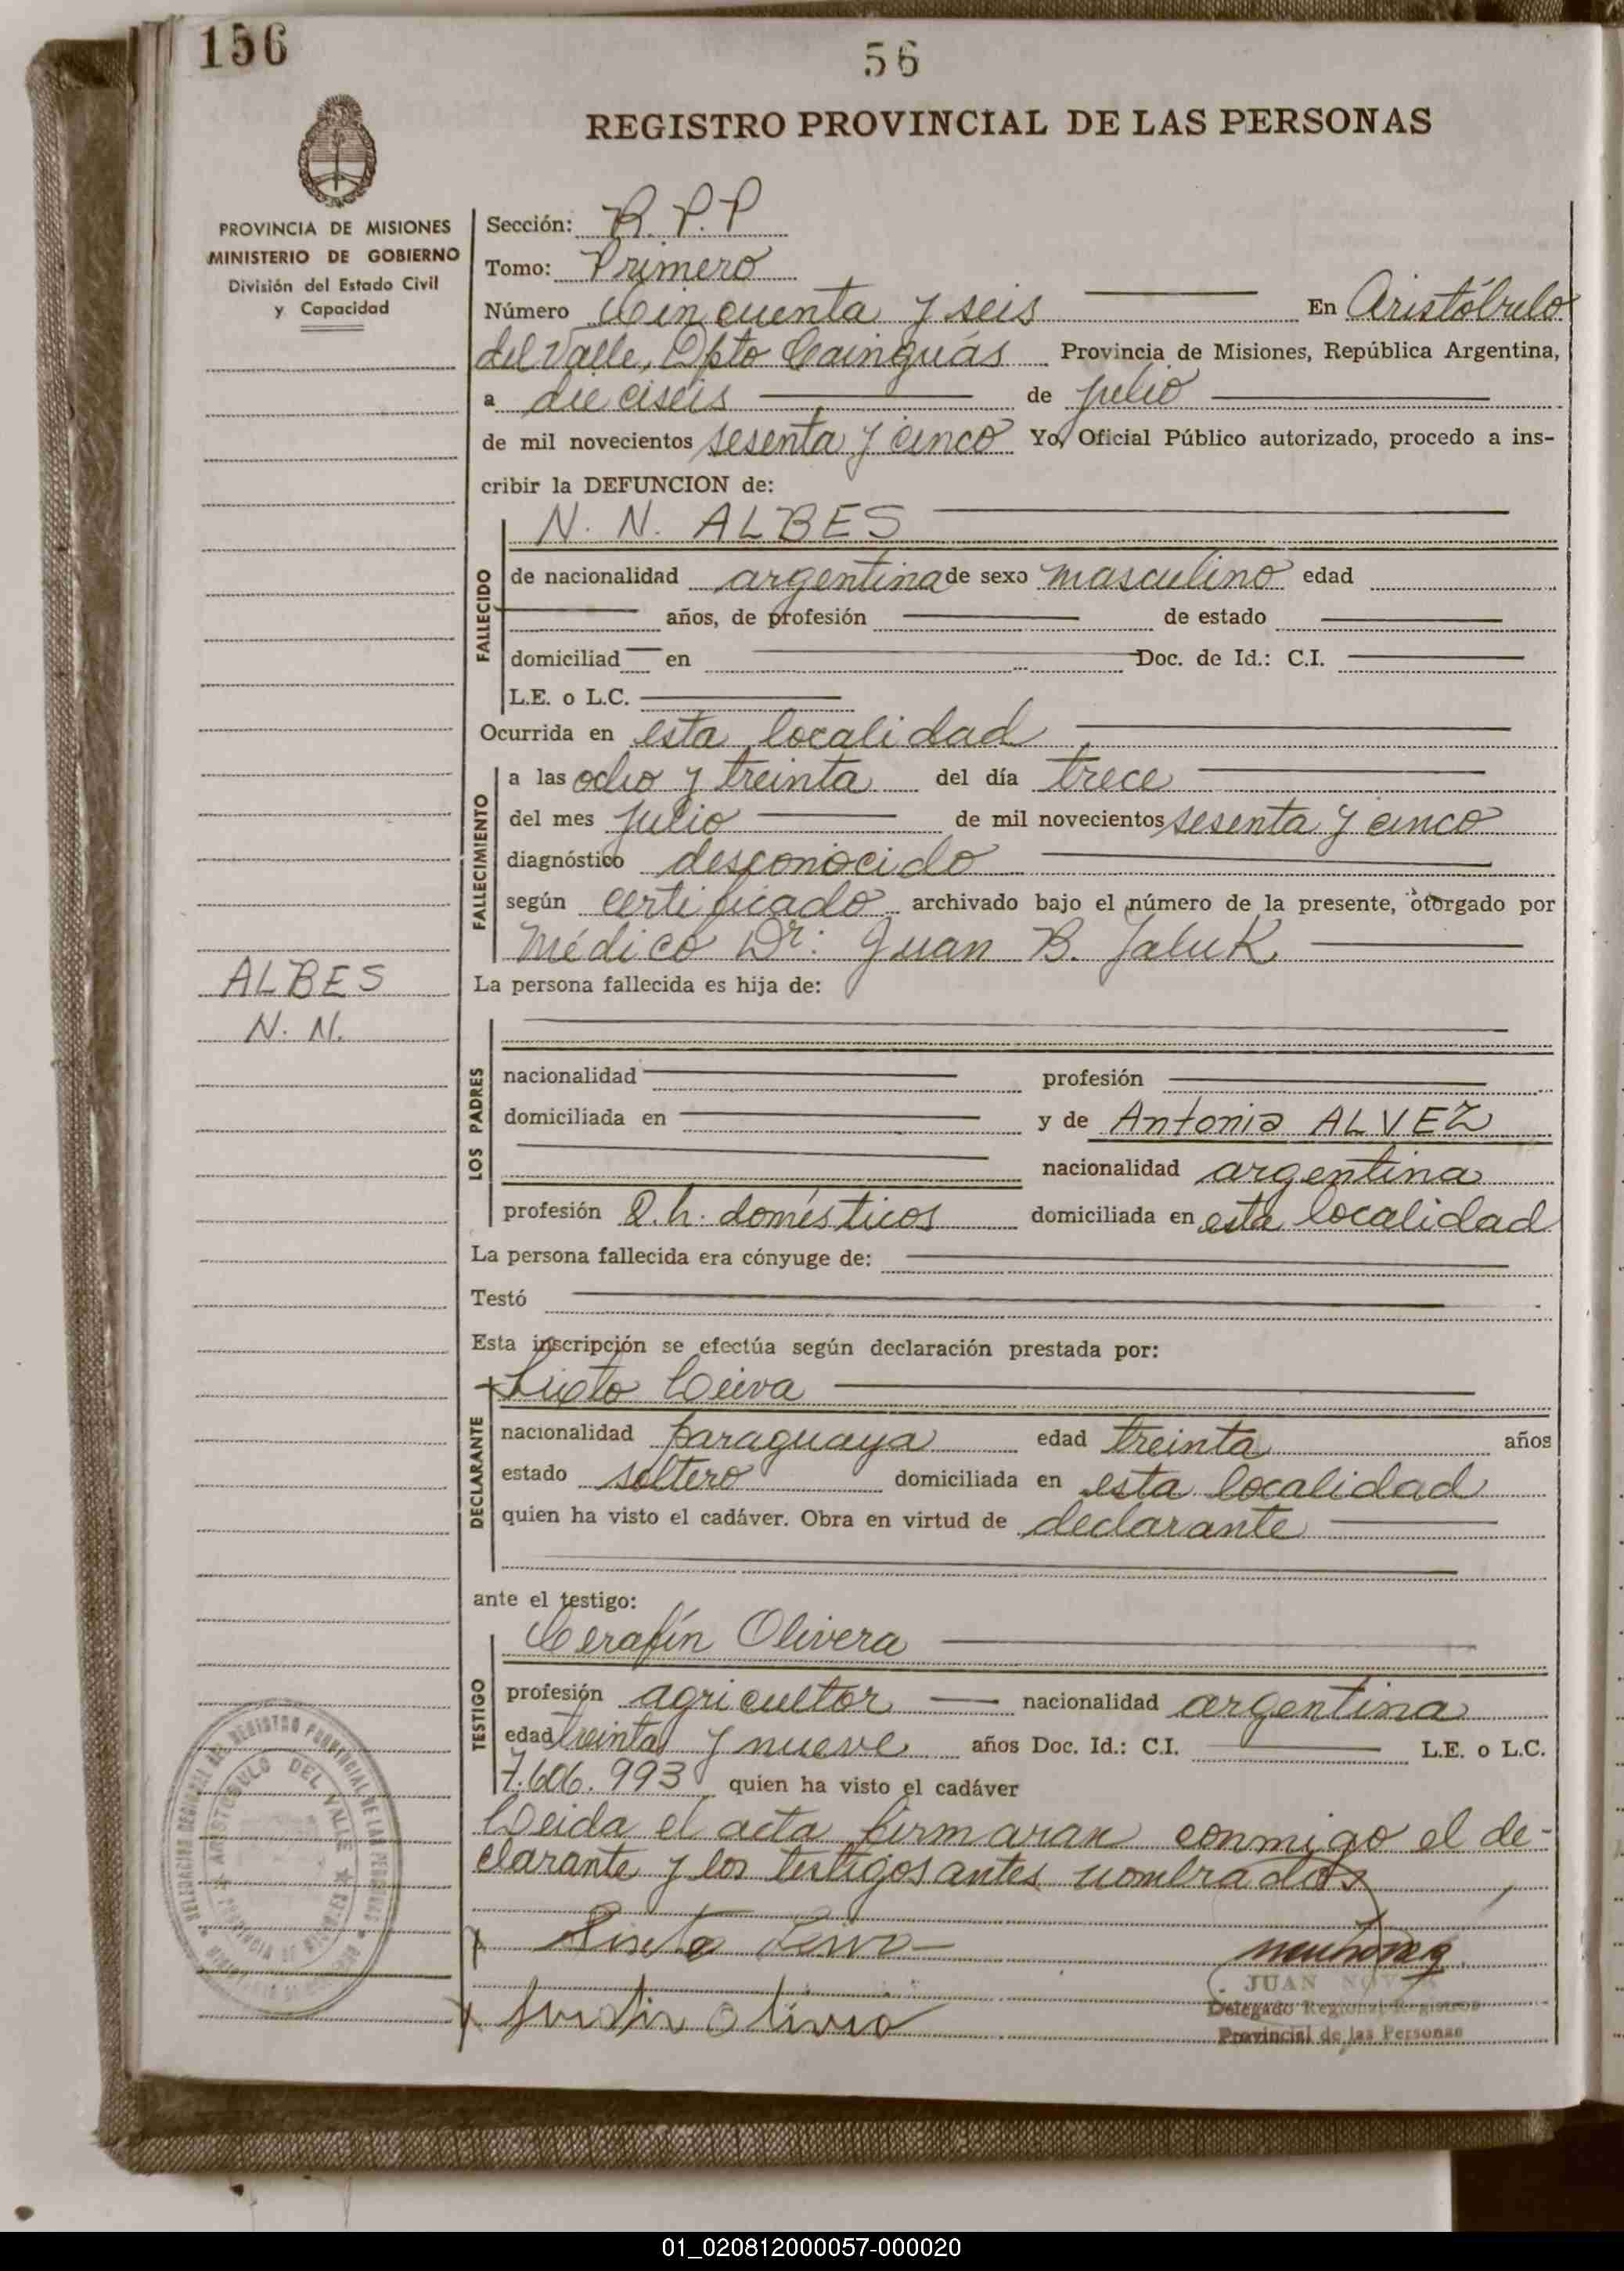 156
56
REGISTRO PROVINCIAL DE LAS PERSONAS
PROVINCIA DE MISIONES
MINISTERIO DE GOBIERNO
División del Estado Civil
y Capacidad
Sección: R.P.P
Tomo: Primero
Número Cincuenta y seis En Aristóbulo
del Valle, Dpto Cainguás Provincia de Misiones, República Argentina,
a dieciseis de julio
de mil novecientos sesenta y cinco Yo, Oficial Público autorizado, procedo a ins-
cribir la DEFUNCION de:
N. N. ALBES
FALLECIDO
de nacionalidad argentina de sexo masculino edad
años, de profesión de estado
domiciliad en Doc. de Id.: C.I.
L.E. o L.C.
Ocurrida en esta localidad
FALLECIMIENTO
a las ocho y treinta del día trece
del mes julio de mil novecientos sesenta y cinco
diagnóstico desconocido
según certificado archivado bajo el número de la presente, otorgado por
Médico Dr: Juan B. Jaluk
ALBES
N. N.
La persona fallecida es hija de:
LOS PADRES
nacionalidad profesión
domiciliada en y de Antonia ALVEZ
nacionalidad argentina
profesión Q.h. domésticos domiciliada en esta localidad
La persona fallecida era cónyuge de:
Testó
Esta inscripción se efectúa según declaración prestada por:
Sixto Leiva
DECLARANTE
nacionalidad paraguaya edad treinta años
estado soltero domiciliada en esta localidad
quien ha visto el cadáver. Obra en virtud de declarante
ante el testigo:
Cerafín Olivera
TESTIGO
profesión agricultor nacionalidad argentina
edad treinta y nueve años Doc. Id.: C.I. L.E. o L.C.
7.606.993 quien ha visto el cadáver
Leida el acta firmaran conmigo el de-
clarante y los testigos antes nombrados
DELEGACION REGIONAL DEL REGISTRO PROVINCIAL DE LAS PERSONAS
ARISTOBULO DEL VALLE
Sixto Leiva
JUAN
Delegado Regional Registro
Provincial de las Personas
01_020812000057-000020